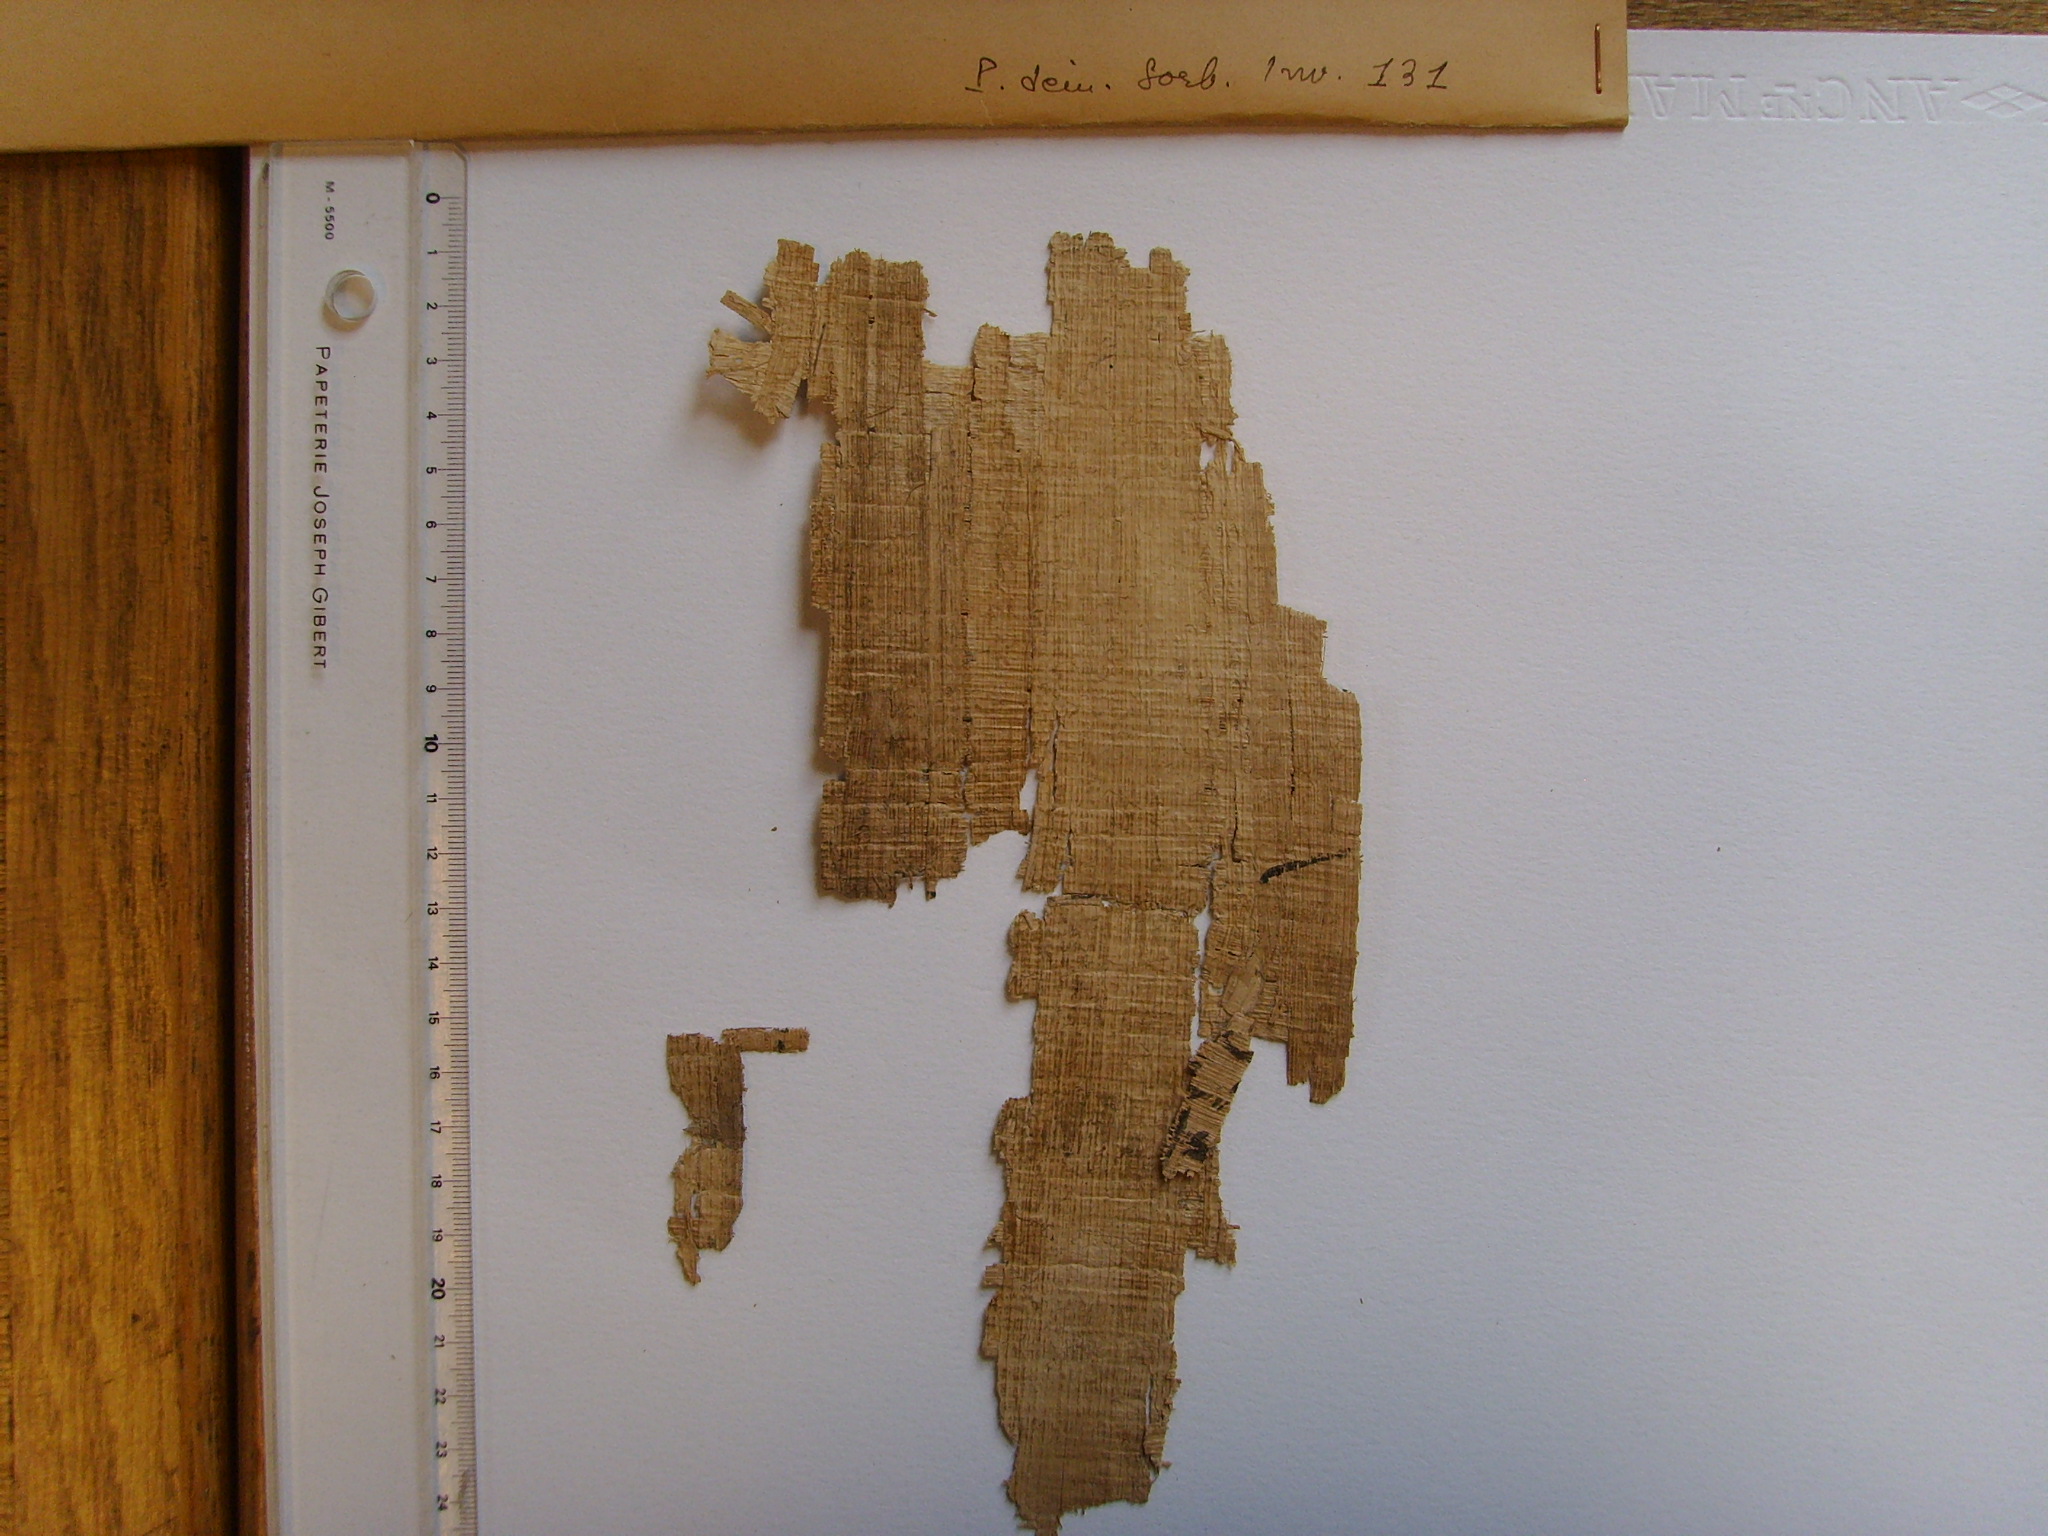 P. dem. Sorb. Inv. 131
ANCNE MA
M-5500
PAPETERIE JOSEPH GIBERT
0
1
2
3
4
5
6
7
8
9
10
11
12
13
14
15
16
17
18
19
20
21
22
23
24